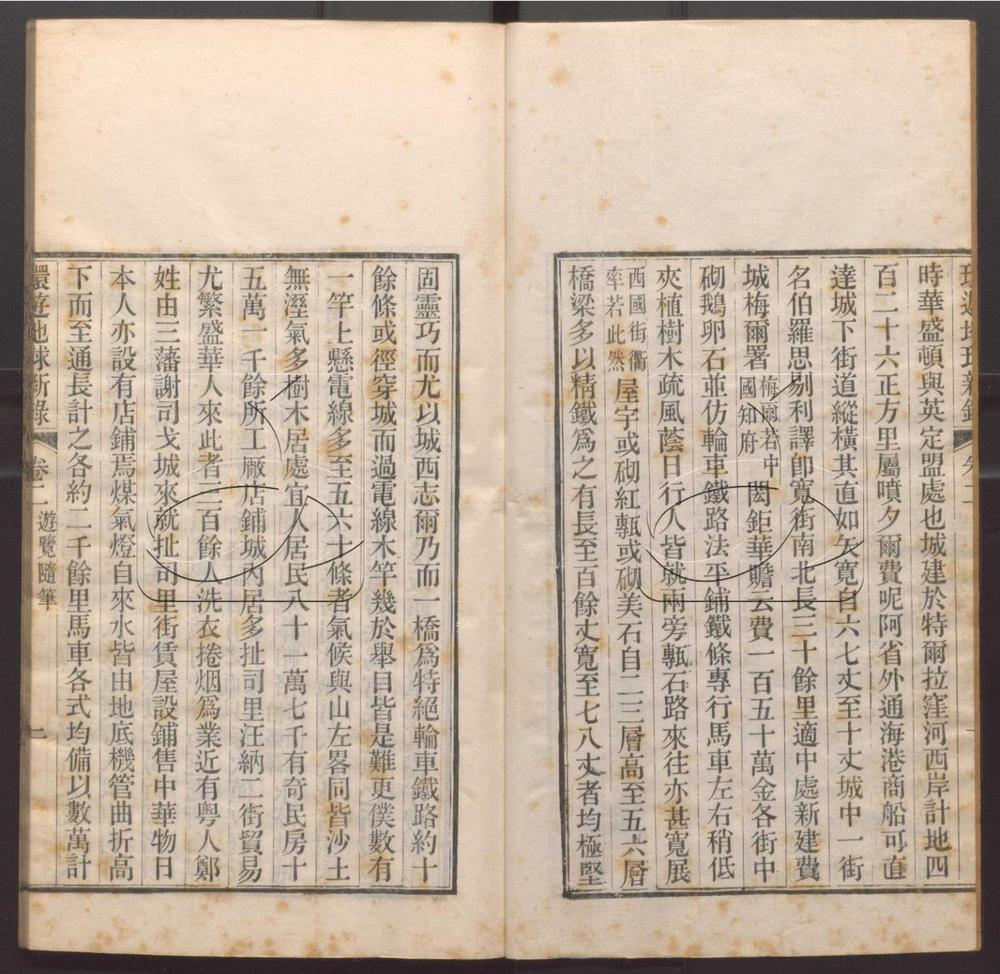 時華盛頓與英定盟處也城建於特爾拉窪河西岸計地四
百二十六正方里屬噴夕爾費呢阿省外通海港商船可直
達城下街道縱橫其直如矢寬自六七丈至十丈城中一街
名伯羅思剔利譯卽寬街南北長三十餘里適中處新建費
城梅爾署梅爾若中國知府閎鉅華贍云費一百五十萬金各街中
砌鵝卵石並仿輪車鐵路法平鋪鐵條專行馬車左右稍低
夾植樹木疏風蔭日行人皆就兩旁甎石路來往亦甚寬展
西國街衢率若此然屋宇或砌紅甎或砌美石自二三層高至五六層
橋梁多以精鐵爲之有長至百餘丈寬至七八丈者均極堅
固靈巧而尤以城西志爾乃而一橋爲特絕輪車鐵路約十
餘條或徑穿城而過電線木竿幾於舉目皆是難更僕數有
一竿上懸電線多至五六十條者氣候與山左畧同皆沙土
無溼氣多樹木居處宜人居民八十一萬七千有奇民房十
五萬一千餘所工厰店鋪城內居多扯司里汪納二街貿易
尤繁盛華人來此者三百餘人洗衣捲烟爲業近有粵人鄭
姓由三藩謝司戈城來就扯司里街賃屋設鋪售中華物日
本人亦設有店鋪焉煤氣燈自來水皆由地底機管曲折高
下而至通長計之各約二千餘里馬車各式均備以數萬計
環遊地球新錄 卷二 遊覽隨筆 一